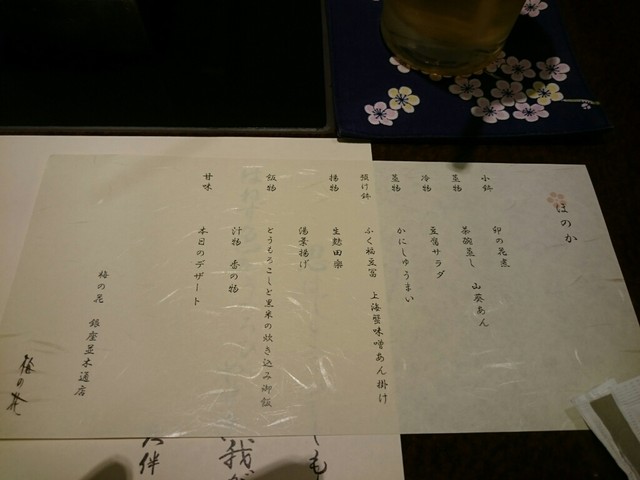 ほのか
小鉢 卯の花煮
蒸物 茶碗蒸し 山葵あん
冷物 豆腐サラダ
蒸物 かにしゅうまい
預け鉢 ふく福豆冨 上海蟹味噌あん掛け
揚物 生麩田楽
湯葉揚げ
飯物 とうもろこしと黒米の炊き込み御飯
汁物 香の物
甘味 本日のデザート
梅の花 銀座並木通店
梅の花